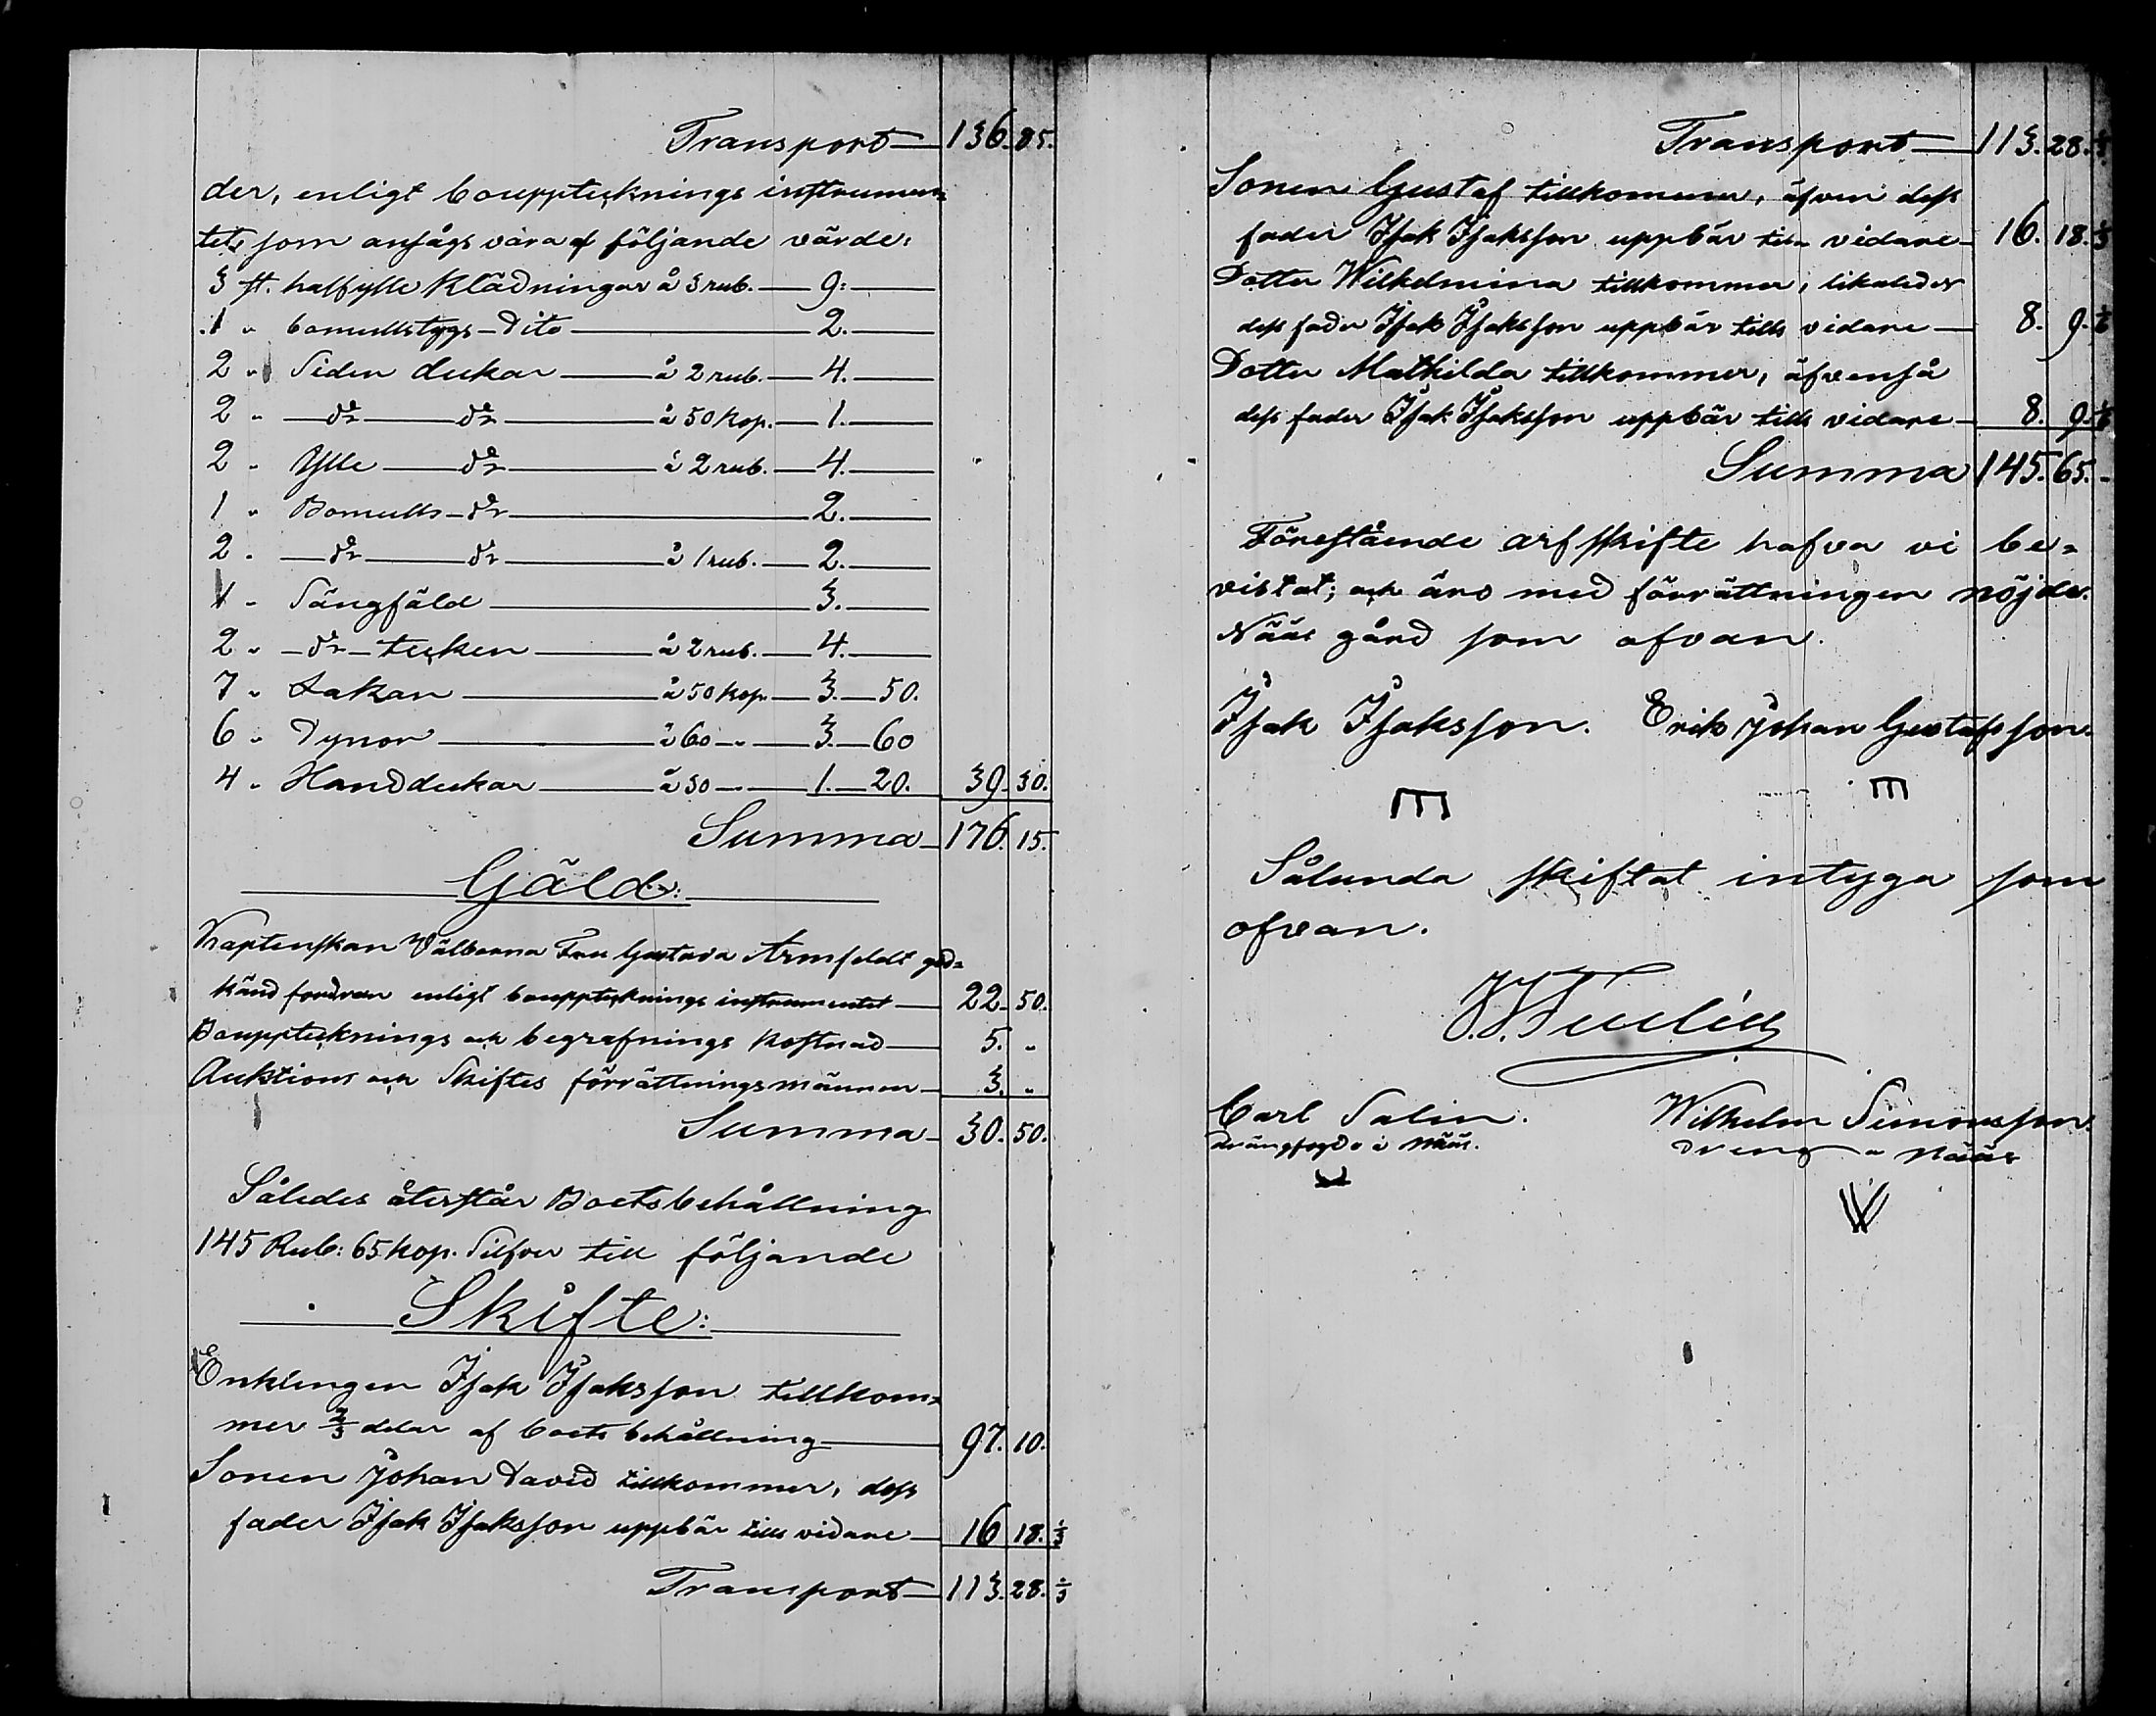 Transport — 136. 85.
der, enligt bouppteknings instrumen=
tet, som ansågs vara af följande värde:
3 st. halfylle Klädningar à 3 rub. — 9: —
1 " bomullstygs — Dito — 2. —
2 " Siden dukar — à 2 rub. — 4. —
2 " — do — do — à 50 kop. — 1. —
2 " Ylle — do — à 2 rub. — 4. —
1 " Bomulls — do — 2. —
2 " — do — do — à 1 rub. — 2. —
1 " Sängfäld — 3. —
2 " — do — täcken — à 2 rub. — 4. —
7 " Lakan — à 50 kop. — 3. — 50.
6 " Dynor — à 60 — " — 3. — 60
4 " Handdukar — à 30 — " — 1. — 20. 39. 30.
Summa — 176. 15.
Gäld:
Kaptenskan Välborna Fru Gustava Armfeldt god=
känd fordran enligt bouppteknings instrumentet — 22. 50.
Bouppteknings och begrafnings kostnad — 5. "
Auktions och Skiftes förrättningsmännen — 3. "
Summa — 30. 50.
Således återstår Boets behållning
145 Rub: 65 kop. Silfver till följande
Skifte:
Enklingen Isak Isaksson tillkom=
mer 2/3 delar af boets behållning — 97. 10.
Sonen Johan David tillkommer, dess
fader Isak Isaksson uppbär tills vidare — 16 18. 1/3
Transport — 113. 28. 1/3
Transport — 113. 28. 1/3
Sonen Gustaf tillkommer, äfven dess
fader Isak Isaksson uppbär tills vidare — 16. 18. 1/3
Dotter Wilhelmina tillkommer, likaledes
dess fader Isak Isaksson uppbär tills vidare — 8. 9. 1/6
Dotter Mathilda tillkommer, äfvenså
dess fader Isak Isaksson uppbär tills vidare — 8. 9. 1/6
Summa 145. 65. "
Förestående arfskifte hafva vi be=
vistat; och äro med förrättningen nöjde.
Nääs gård som ofvan.
Isak Isaksson. Erik Johan Gustafsson.
Sålunda skiftat intyga som
ofvan.
Carl Salin. Wilhelm Simonsson.
drängfogde i Nääs. dreng " Nääs